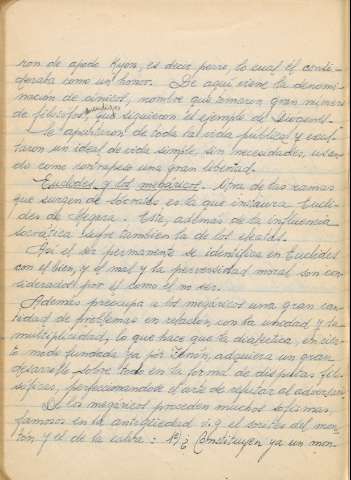 ron de apodo Kyon, es decir perro, lo cual él consi-
deraba como un honor. De aquí viene la denomi-
nación de cínicos, nombre que tomaron gran número
de filósofos que siguieron el ejemplo de Diógenes.
Se apartaron de toda la vida pública y exal-
taron un ideal de vida simple, sin necesidades,
como contrapeso una gran libertad.
Euclides y los megáricos. Otra de las ramas
que surgen de Sócrates es la que instaura Eucli-
des de Megara. Este, además de la influencia
socrática sufre también la de los eleatas.
Así el ser permanente se identifica en Euclides
con el bien, y el mal y la perversidad moral son con-
siderados por él como el no ser.
Además preocupa a los megáricos una gran can-
tidad de problemas en relación con la unidad y la
multiplicidad, lo que hace que la dialéctica, en cier-
to modo fundada ya por Zenón, adquiera un gran
desarrollo sobre todo en la forma de disputas filo-
sóficas, perfeccionándose el arte de refutar al adversario
De los megáricos proceden muchos sofismas,
famosos en la antigüedad v.g. el sorites del mon-
tón y el de la calva: 1º) ¿Constituyen ya un mon-